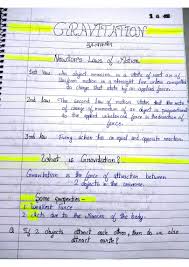 GRAVITATION
गुरुत्वाकर्षण
Newton's Laws of Motion
1st law An object remains in a state of rest or of
Uniform motion in a straight line unless compelled
to change that state by an applied force.
2nd law The second law of motion states that the rate
of change of momentum of an object is proportional
to the applied unbalanced force in the direction
of force.
3rd law Every action has an equal and opposite reaction.
What is Gravitation?
Gravitation is the force of attraction between
2 objects in the universe.
Some properties-
1. Weakest Force
2. along the
of the body.
Q. If 2 objects attract each other, then do we also
attract earth?